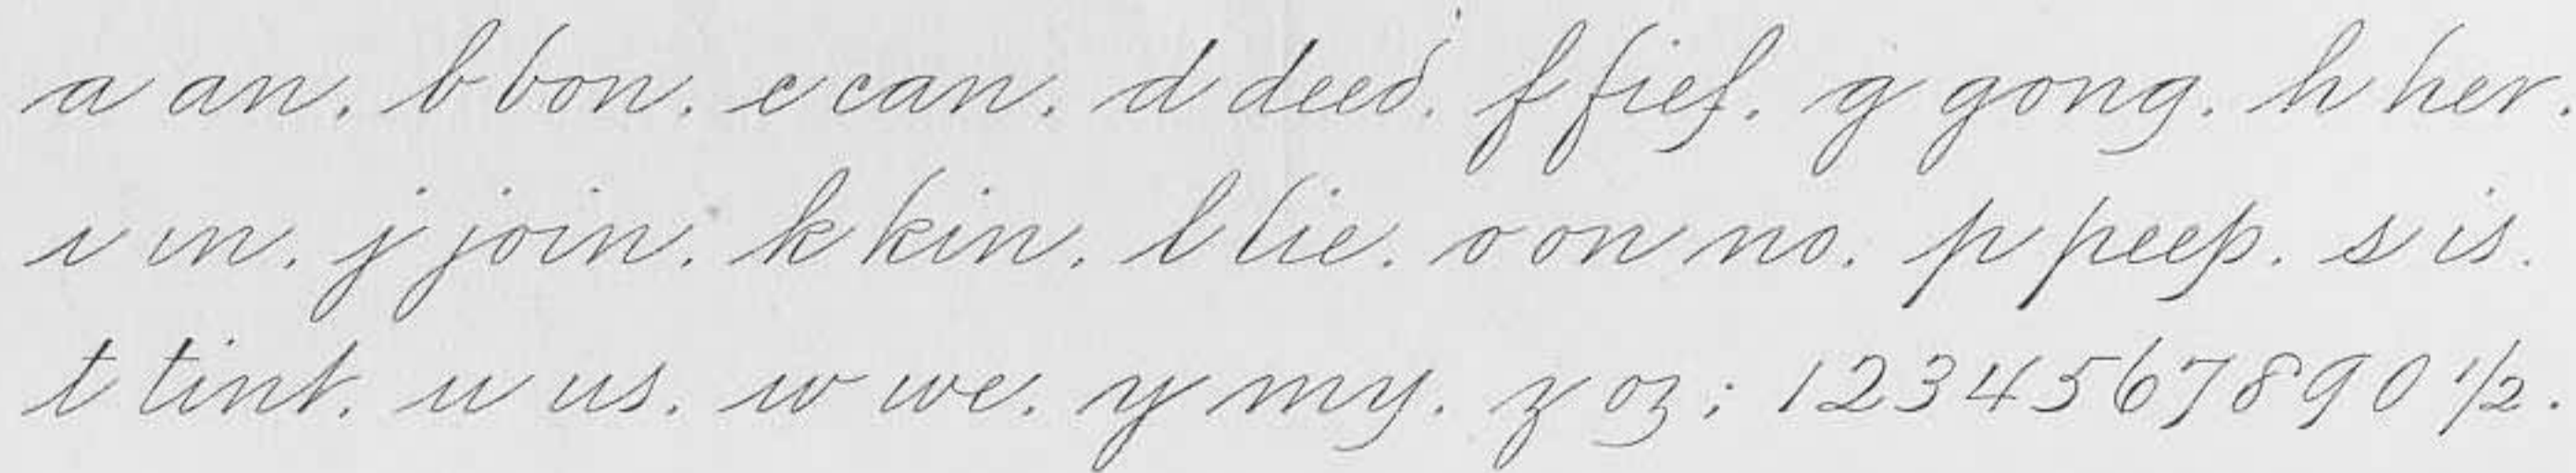 a an. b bon. c can. d deed. f fief. g gong. h her.
i in. j join. k kin. l lie. o on no. p peep. s is.
t tint. u us. w we. y my. z oz; 1 2 3 4 5 6 7 8 9 0 1/2.